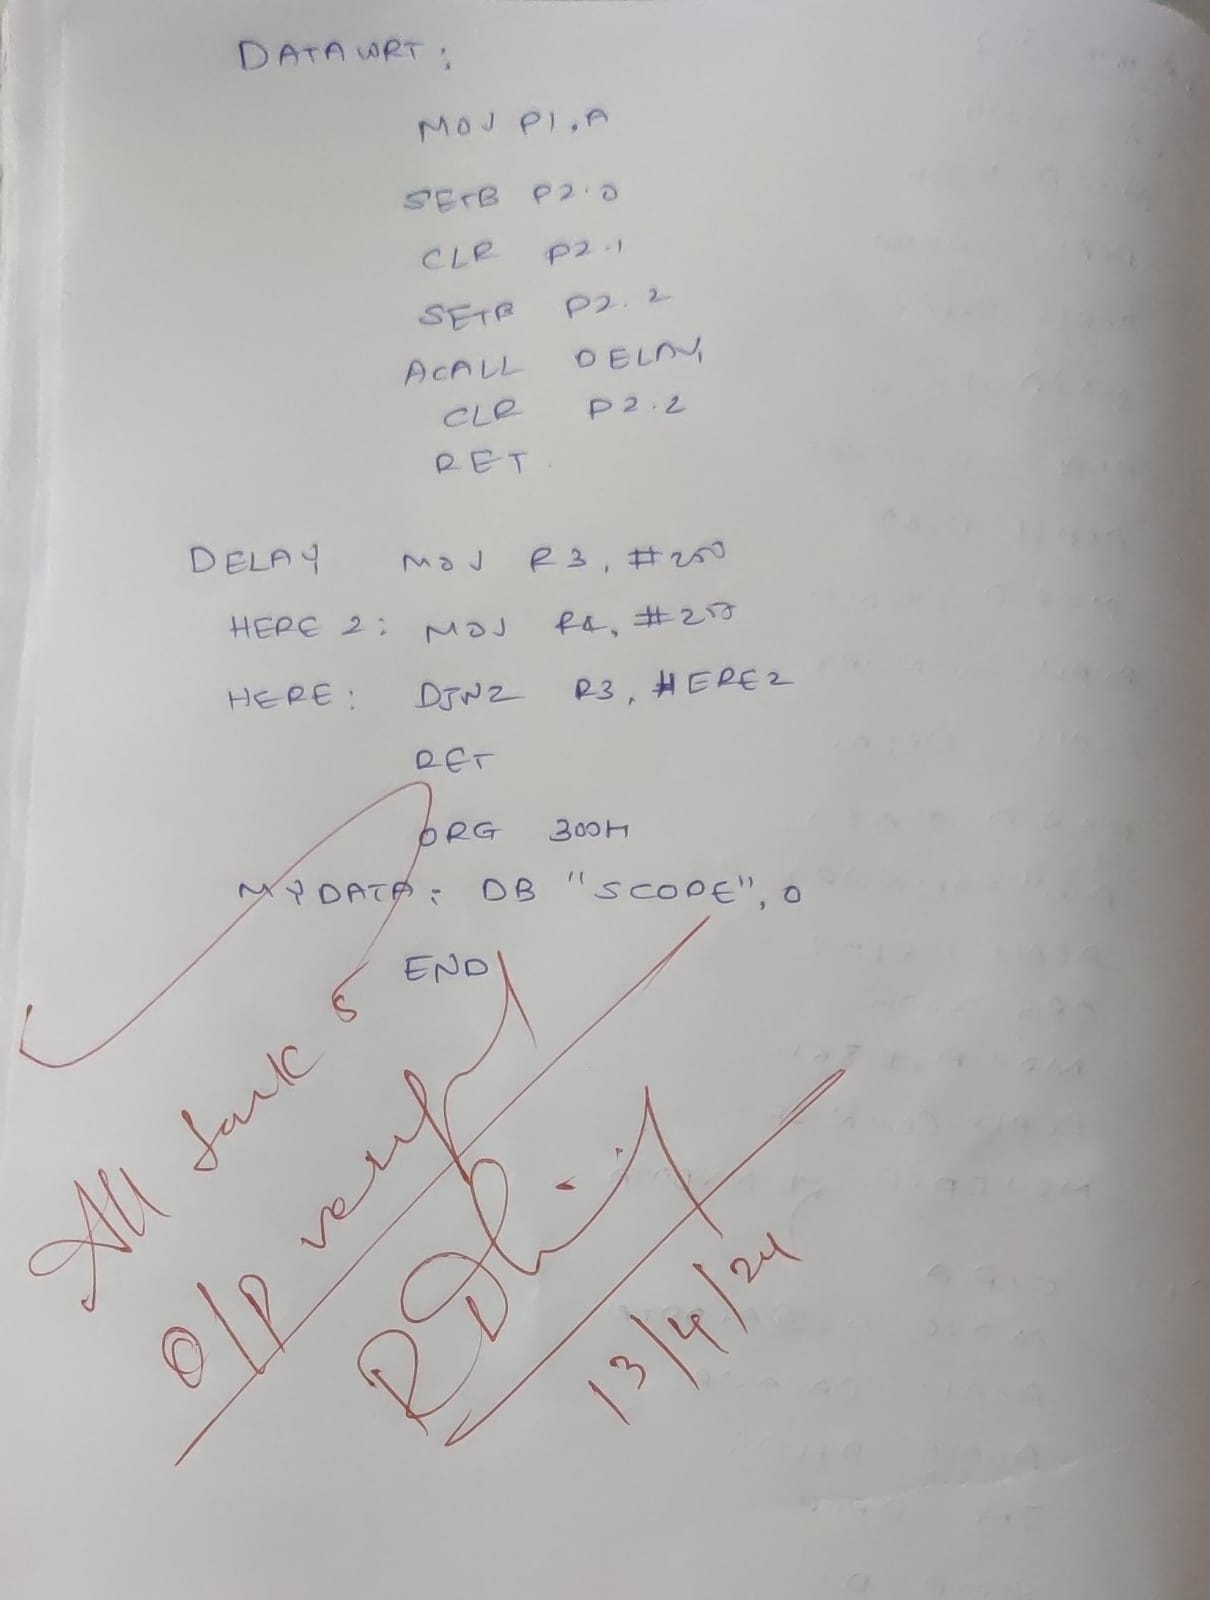 DATAWRT :
MOV P1,A
SETB P2.0
CLR P2.1
SETB P2.2
ACALL DELAY
CLR P2.2
RET
DELAY MOV R3, #250
HERE 2: MOV R4, #250
HERE: DJNZ R3, HERE2
RET
ORG 300H
MYDATA: DB "SCOPE", 0
END
All task 5
O/P verified
13/4/24